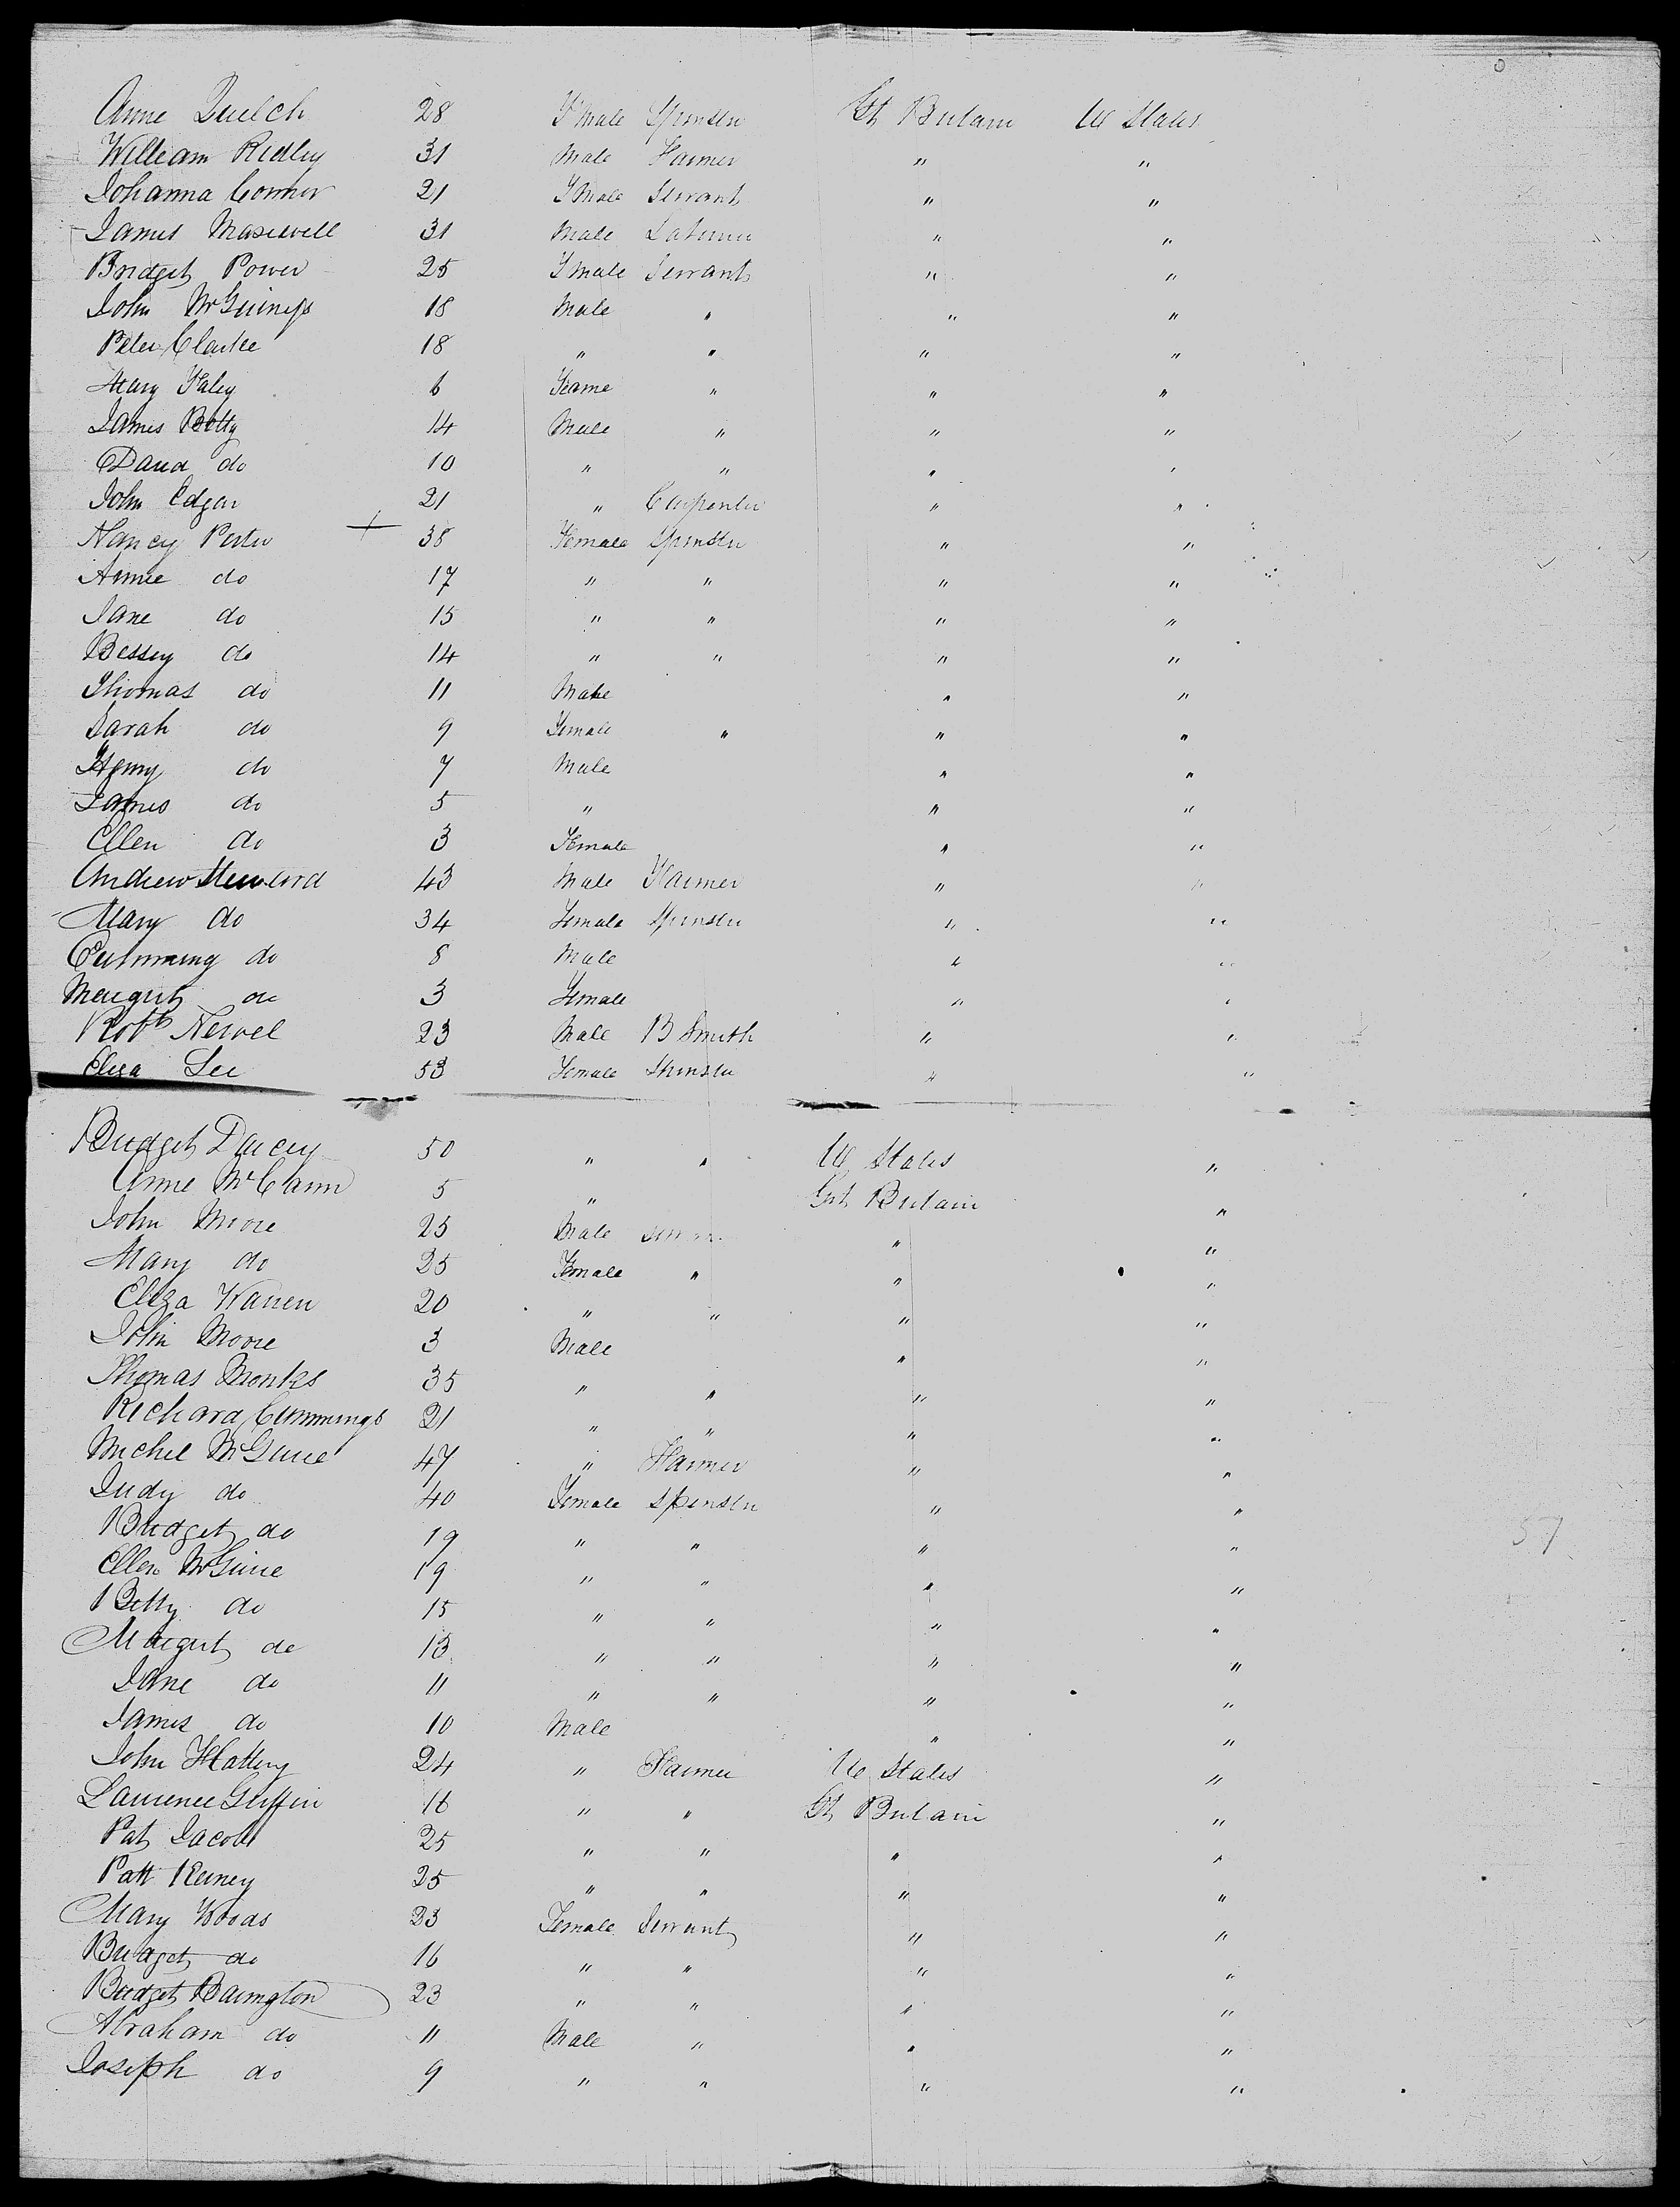 Anne Quelch 28 Fmale Spinster Gt Britain U States
William Ridley 31 Male Farmer " "
Johanna Connor 21 Fmale Servant " "
James Maxewell 31 Male Laborer " "
Bridget Power 25 Fmale Servant " "
John McGuiness 18 Male " " "
Peter Clarke 18 " " " "
Mary Faley 6 " " "
James Botty 14 Male " " "
David do 10 " " " "
John Edgar 21 " Carpenter " "
Nancy Porter + 38 Female Spinster " "
Annie do 17 " " " "
Jane do 15 " " " "
Bessey do 14 " " " "
Thomas do 11 Male " "
Sarah do 9 Female " " "
Henry do 7 Male " "
James do 5 " " "
Ellen do 3 Female " "
Andrew 43 Male Farmer " "
Mary do 34 Female Spinster " "
Cumming do 8 Male " "
Margret do 3 Female " "
Robt Newel 23 Male B Smith " "
Eliza Lee 53 Female Spinster " "
Bridget Darcey 50 " " U States "
Anne McCann 5 " Gt Britain "
John Moore 25 Male " "
Mary do 25 Female " " "
Eliza Warren 20 " " " "
John Moore 3 Male " "
Thomas Monks 35 " " " "
Richard Cummings 21 " " " "
Michel McGuire 47 " Farmer " "
Judy do 40 Female Spinster " "
Bridget do 19 " " " "
57
Ellen McGuire 19 " " " "
Betty do 15 " " " "
Margret do 13 " " " "
Jane do 11 " " " "
James do 10 Male " "
John Flattery 24 " Farmer U States "
Laurence Griffin 16 " " Gt Britain "
Pat Jacob 25 " " " "
Patt Kerney 25 " " " "
Mary Woods 23 Female Servant " "
Bridget do 16 " " " "
Bridget Barington 23 " " " "
Abraham do 11 Male " " "
Joseph do 9 " " " "